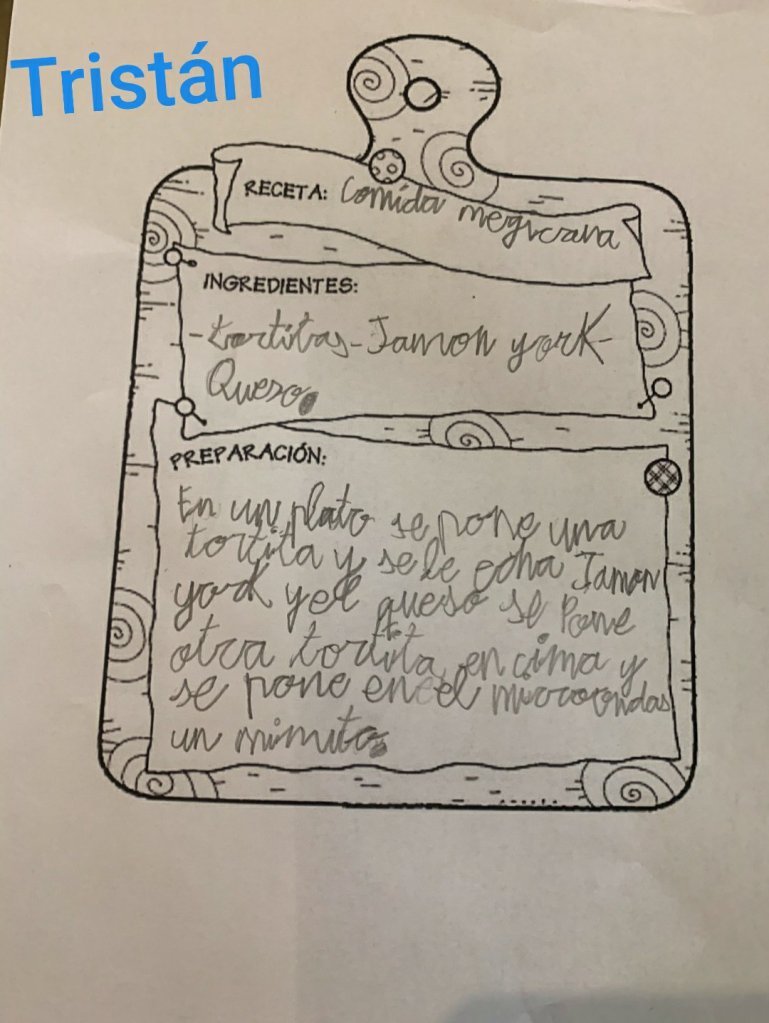 Tristán
RECETA: Comida megicana
INGREDIENTES:
-tortitas-Jamon york-
Queso.
PREPARACIÓN:
En un plato se pone una
tortita y se le echa Jamon
york y el queso se Pone
otra tortita en cima y
se pone en el microondas
un minuto.